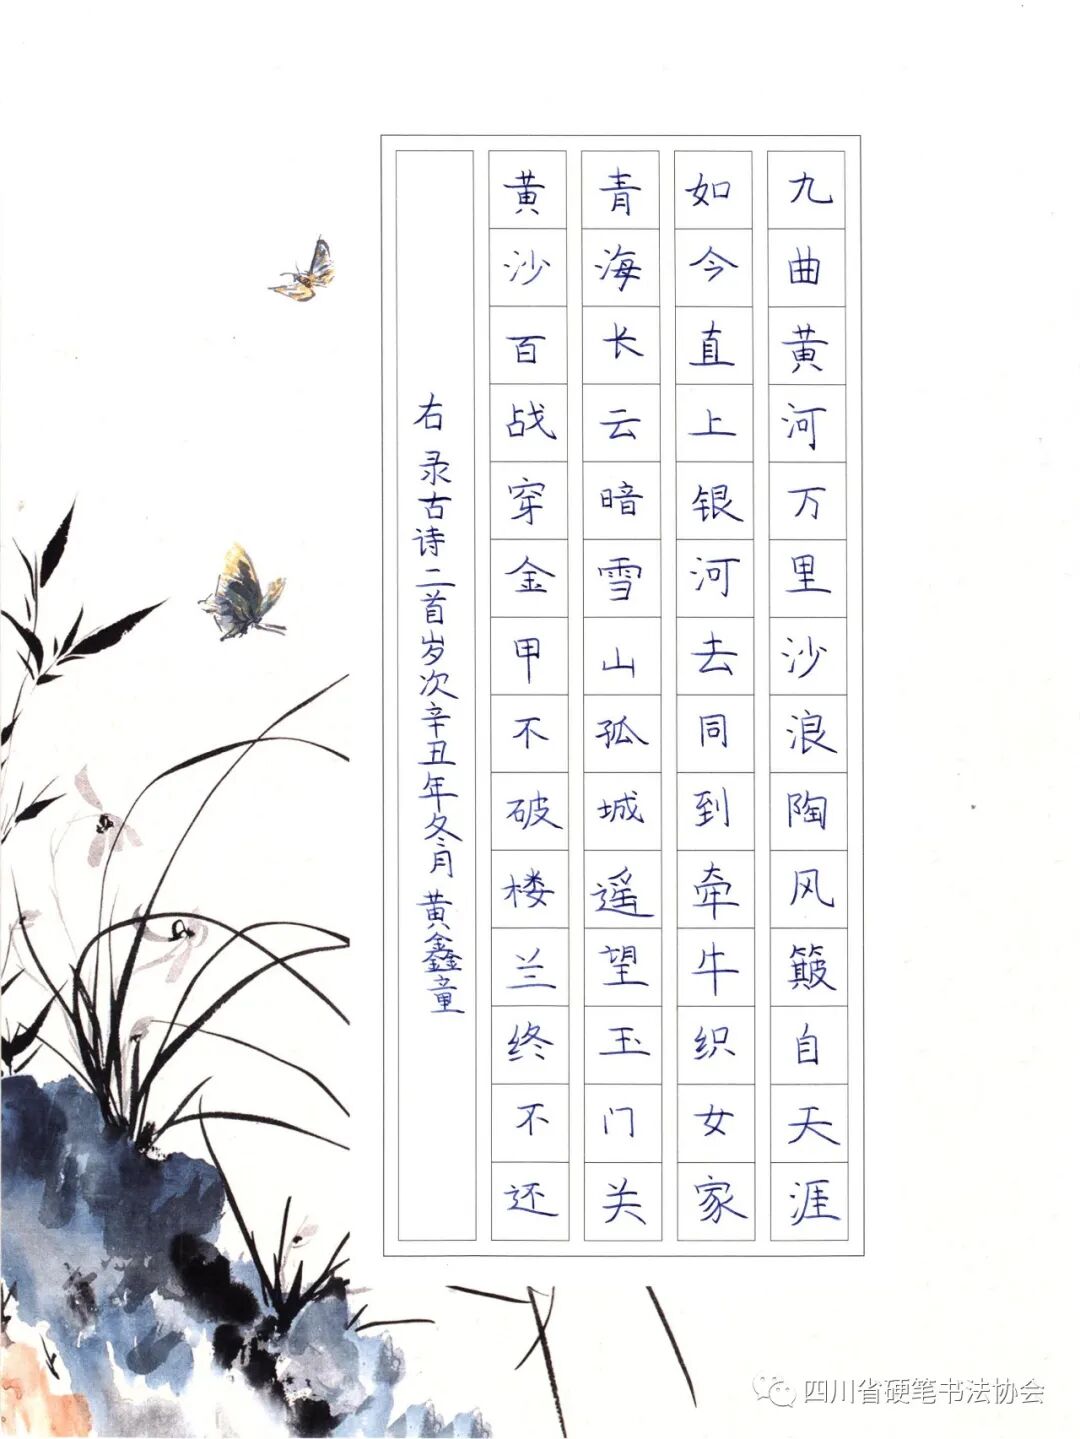 九曲黄河万里沙浪陶风簸自天涯
如今直上银河去同到牵牛织女家
青海长云暗雪山孤城遥望玉门关
黄沙百战穿金甲不破楼兰终不还
右录古诗二首岁次辛丑年冬月黄鑫童
四川省硬笔书法协会